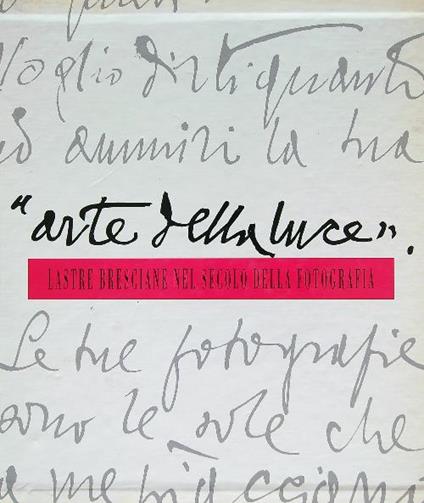 Voglio dirti quanto
ed ammiri la tua
"arte della luce".
LASTRE BRESCIANE NEL SECOLO DELLA FOTOGRAFIA
Se tue fotografie
sono le sole che
a me